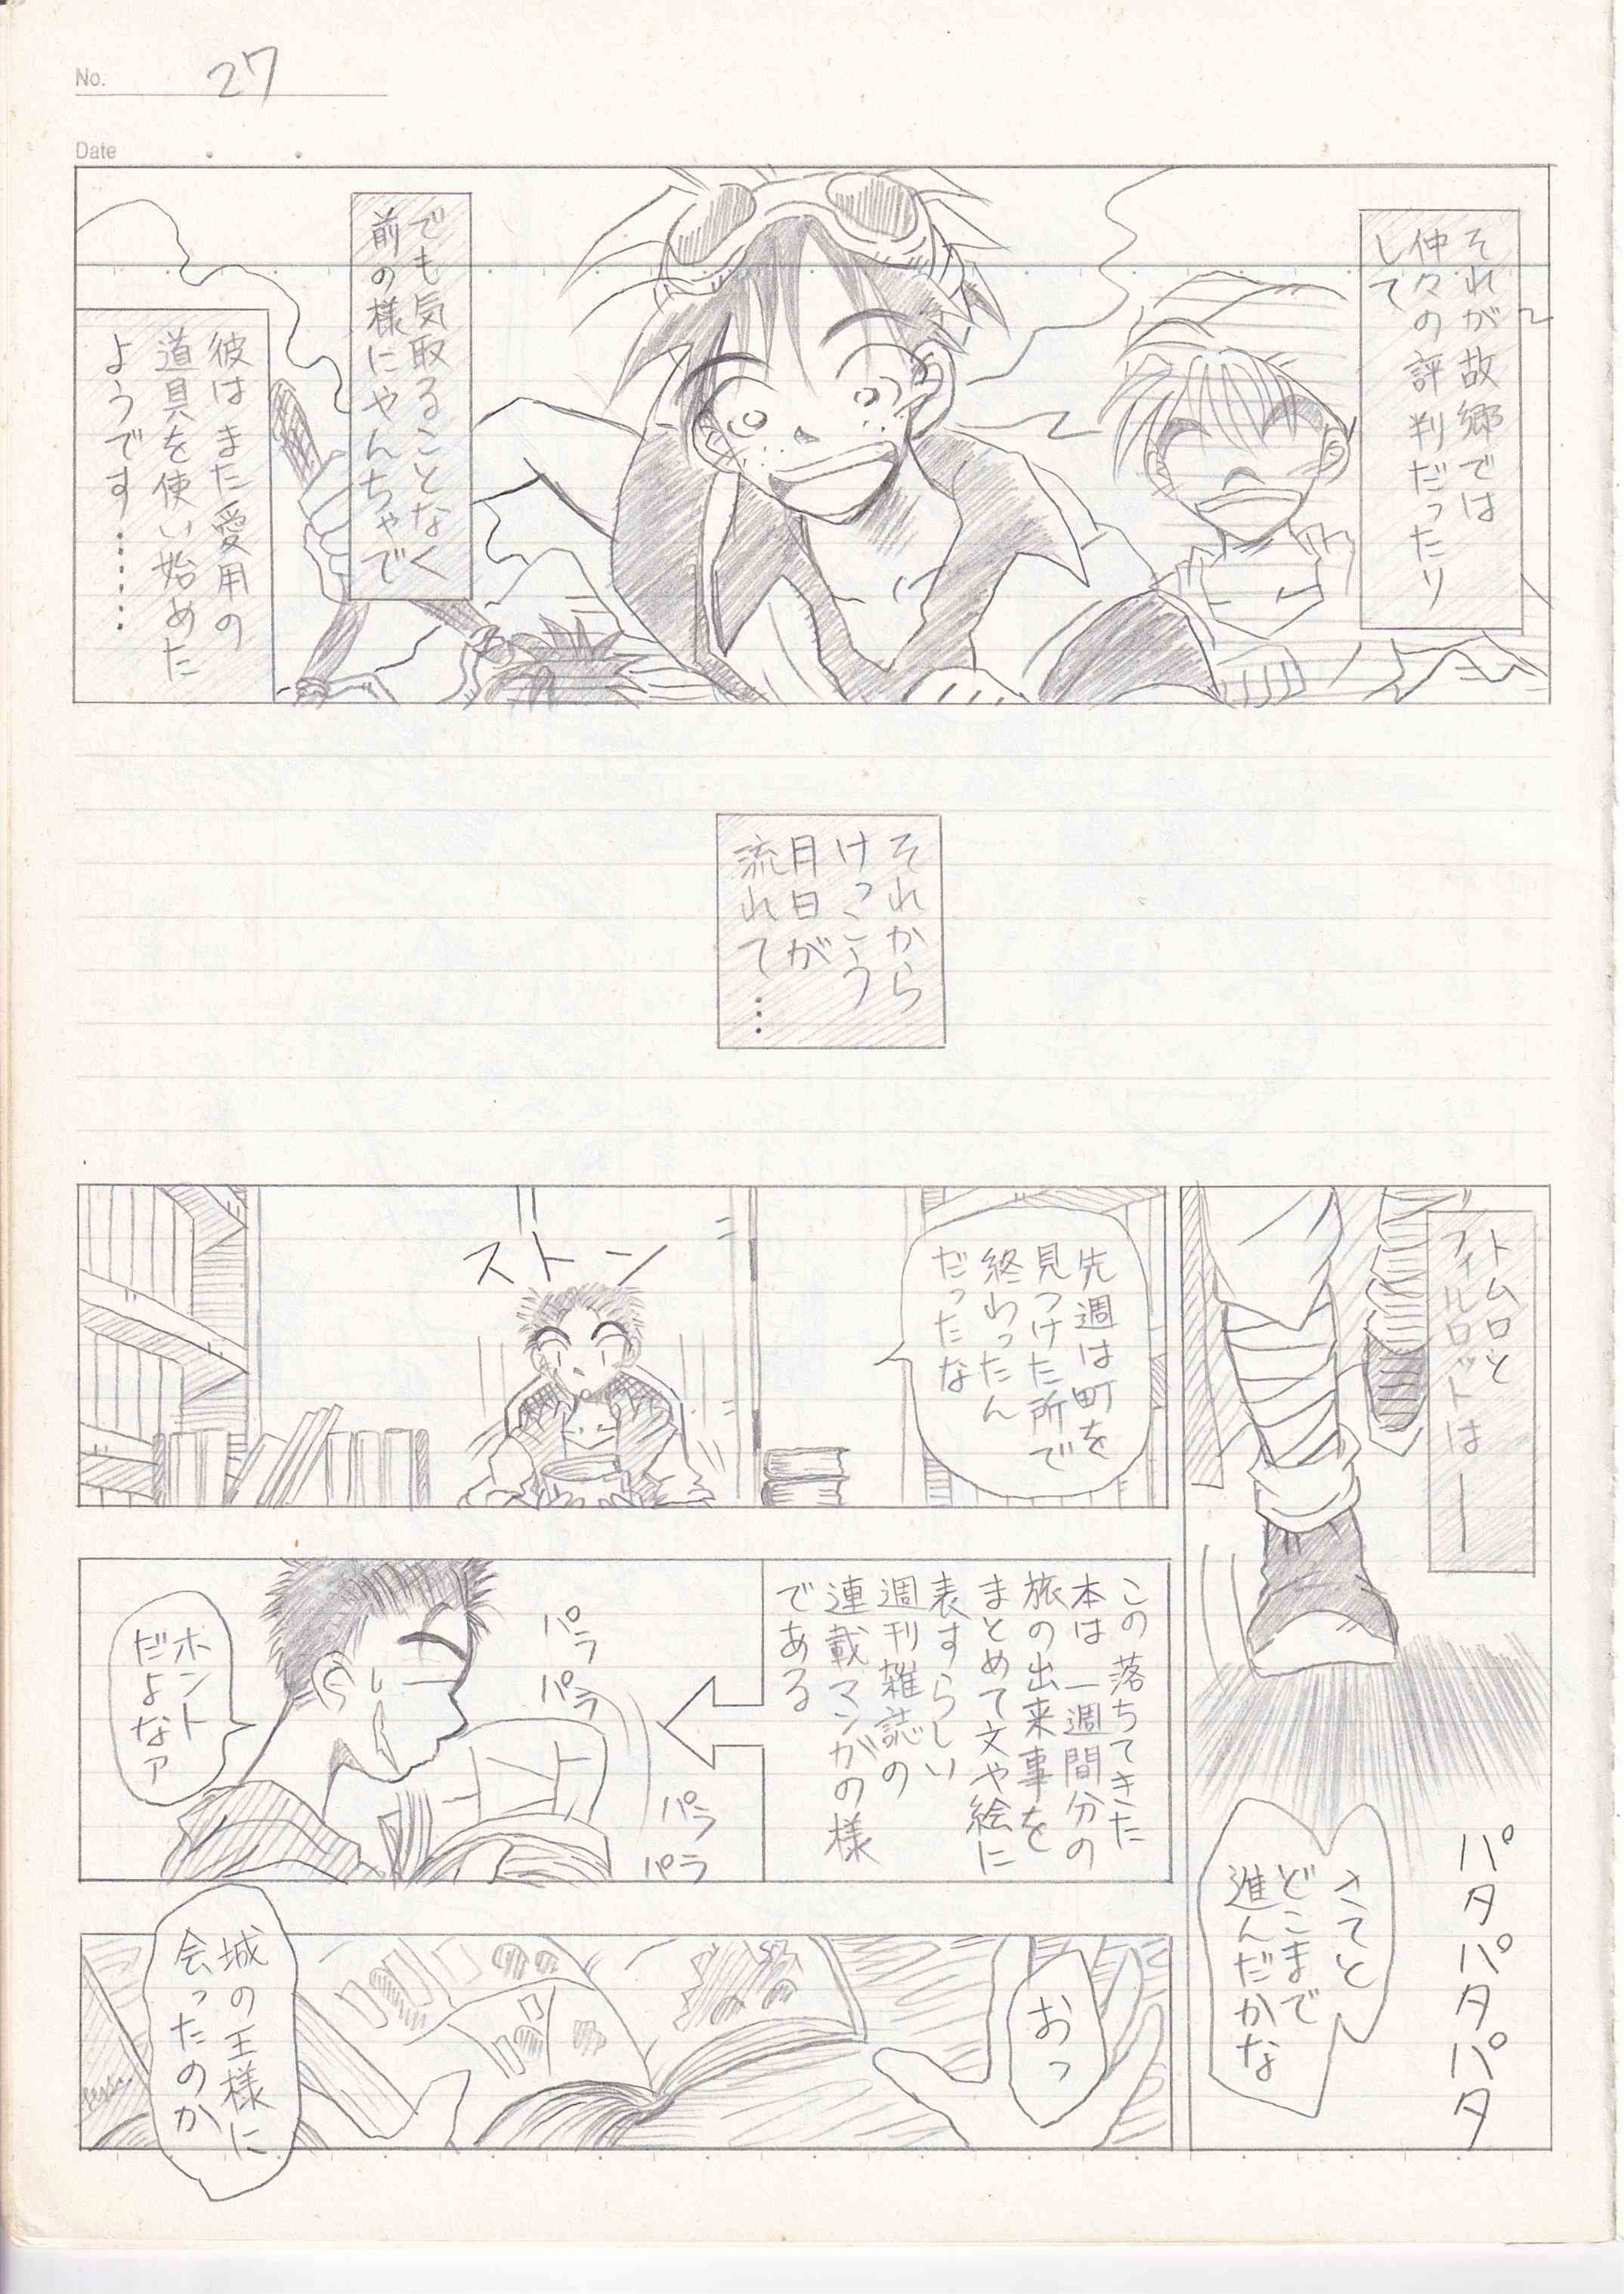 No. 27
Date
それが故郷では
仲々の評判だったり
して
でも気取ることなく
前の様にやんちゃで
彼はまた愛用の
道具を使い始めた
ようです………
それから
けっこう
月日が
流れて…
トムロと
フィルロットは―
パタパタパタ
さてと
どこまで
進んだかな
先週は町を
見つけた所で
終わったん
だったな
ストン
この落ちてきた
本は一週間分の
旅の出来事を
まとめて文や絵に
表すらしい
週刊雑誌の
連載マンガの様
である
パラ
パラ
パラ
パラ
ホント
だよなァ
おっ
城の王様に
会ったのか